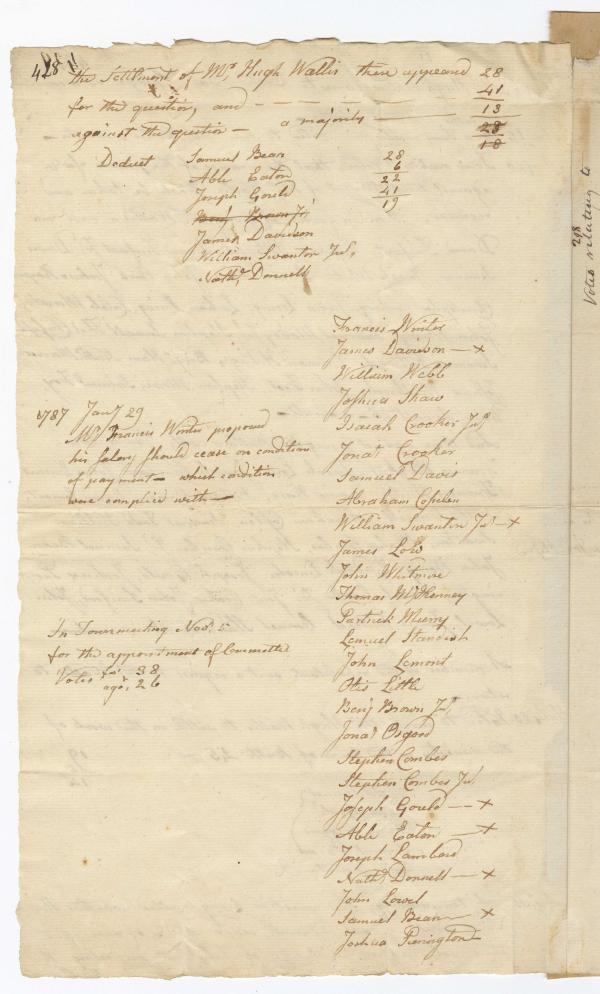 428
the Settlment of Mr. Hugh Wallis there appeared 28
for the question, and — 41
against the question — a majority — 13
28
18
Deduct Samuel Bean 28
Able Eaton 6
Joseph Gould 22
Benj Brown Jr. 41
James Davidson 19
William Swanton Jur.
Nathl. Donnell
Francis Winter
James Davidson — x
William Webb
Joshua Shaw
Isaiah Crooker Jur
Jonat Crooker
Samuel Davis
Abraham
William Swanton Jur — x
James Low
John Whitmore
Thomas McKenney
Partrick Murry
Lemuel Standish
John Lemont
Otis Little
Benj Brown Jr.
Jonat Osgood
Stephen Combes
Stephen Combes Jur.
Joseph Gould — x
Able Eaton — x
Joseph Lambard
Nathl. Donnell — x
John Lowel
Samuel Bean — x
Joshua
1787 Jany 29
Mr. Francis Winter proposed
his salary should cease on condition
of payment — which condition
were complied with —
In Townmeeting Novr. 5
for the appointment of Committee
Votes for 38
agst 26
298
Votes relating to